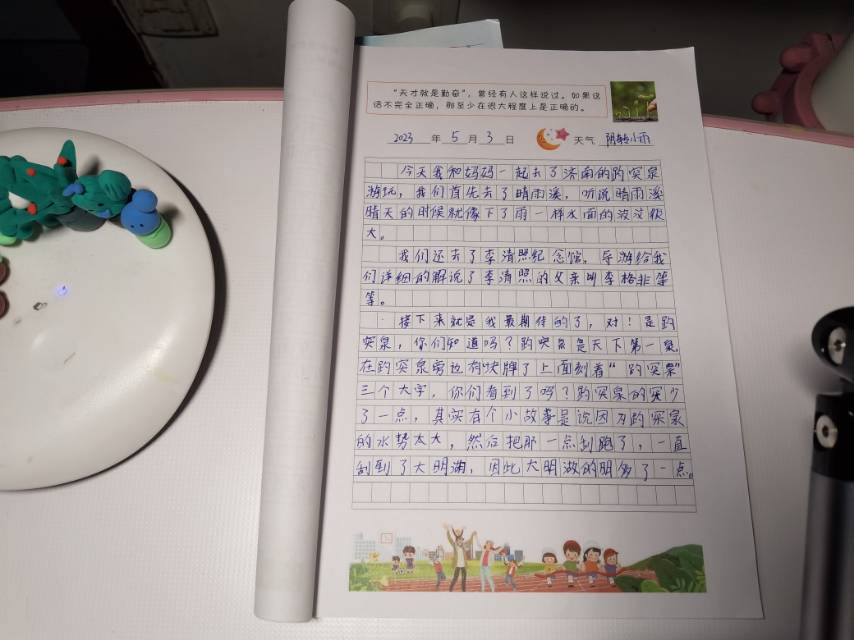 “天才就是勤奋”，曾经有人这样说过。如果这
话不完全正确，那至少在很大程度上是正确的。
2023 年 5 月 3 日 天气 阴转小雨
今天我和妈妈一起去了济南的趵突泉
游玩，我们首先去了晴雨溪，听说晴雨溪
晴天的时候就像下了雨一样水面的波纹很
大。
我们还去了李清照纪念馆，导游给我
们详细的解说了李清照的父亲叫李格非等
等。
接下来就是我最期待的了，对！是趵
突泉，你们知道吗？趵突泉是天下第一泉。
在趵突泉旁边有块牌了上面刻着“趵突泉”
三个大字，你们看到了吗？趵突泉的突少
了一点，其实有个小故事是说因为趵突泉
的水势太大，然后把那一点刮跑了，一直
刮到了大明湖，因此大明湖的明多了一点。